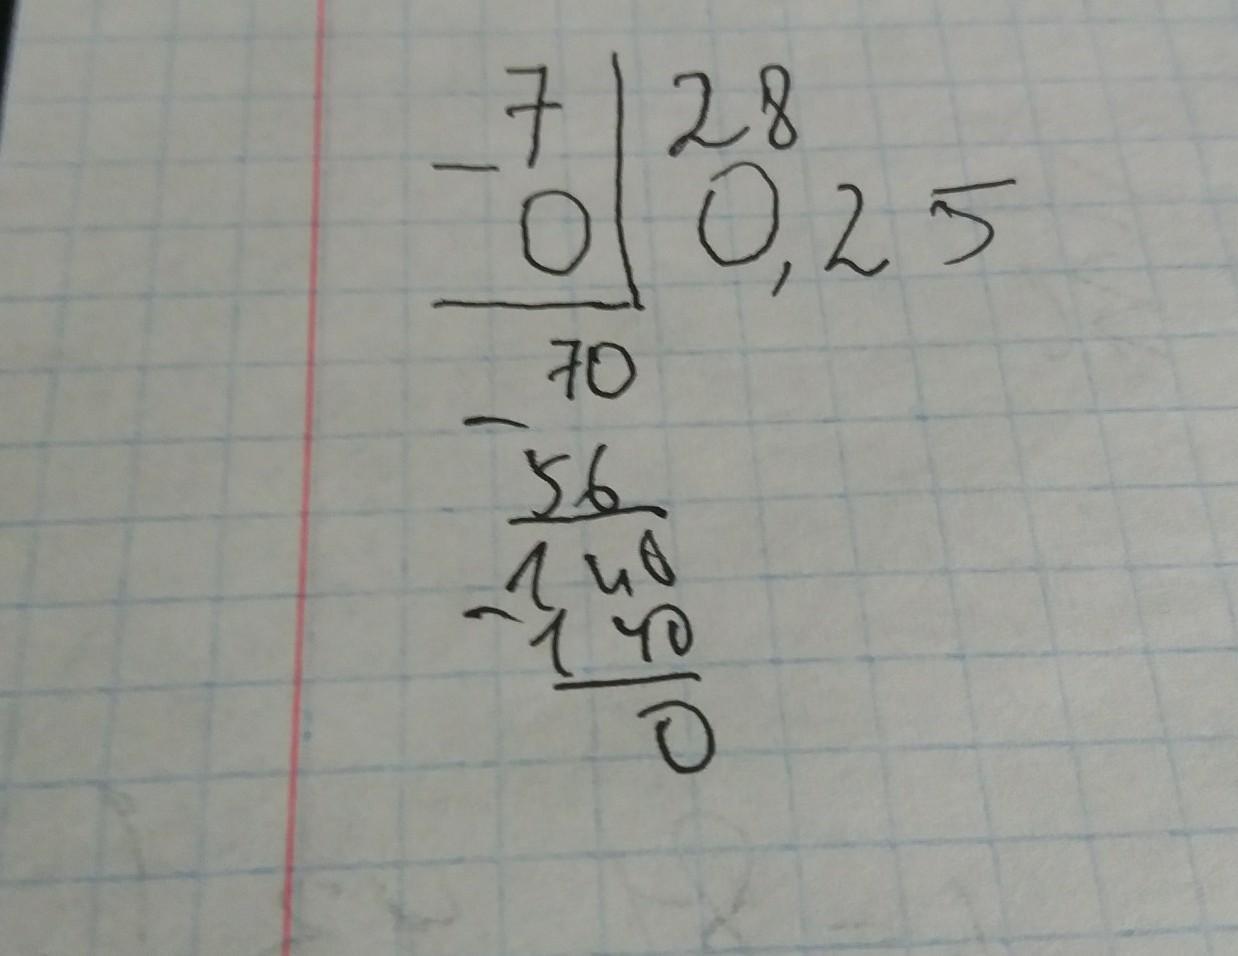 7 28
- 0 0,25
70
- 56
140
- 140
0